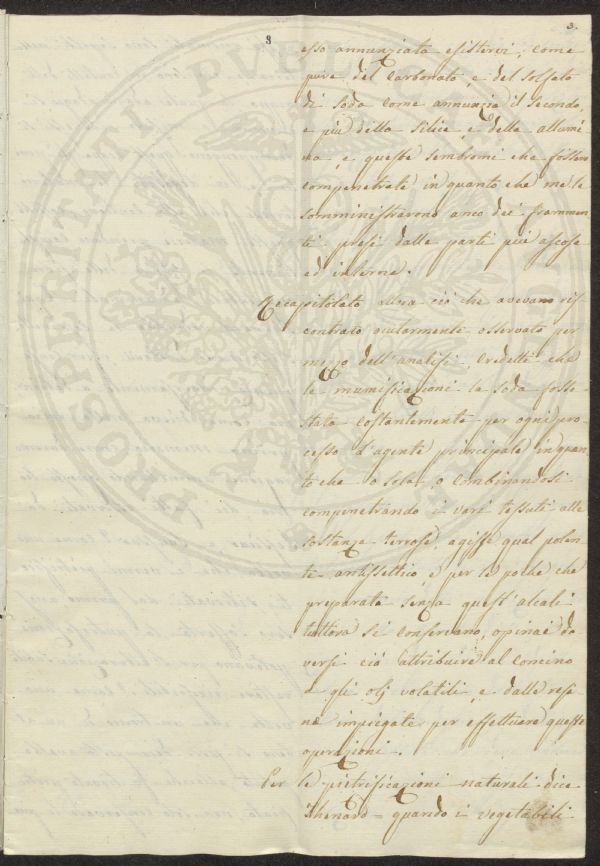 8
3.
esso annunziata esistervi, come
pure del Carbonato, e del solfato
di soda come annunzia il secondo,
e più della silice, e della allumi-
na, e queste sembromi che fossero
compenetrate in quanto che me le
somministrarono anco dei frammen-
ti presi dalle parti più ascose
ed interne.
Recapitolato allora ciò che avevano ris
contrato ocularmente osservato per
mezzo dell'analisi, Credetti che
le mumificazioni la soda fosse
stata costantemente per ogni pro-
cesso l'agente principale in quan-
to che o sola, o combinandosi
compenetrando i vari tessuti alle
sostanze terrose, agisse qual poten-
te antisettico, e per le poche che
preparate senza quest'alcali
tuttora si conservano, opinai do
versi ciò attribuire al Concino
a gli olj volatili, e dalle resi
ne impiegate per effettuare queste
operazioni.
Per le pietrificazioni naturali dice
Thenard - quando i vegetabili
PROSPERITATI PUBLICAE